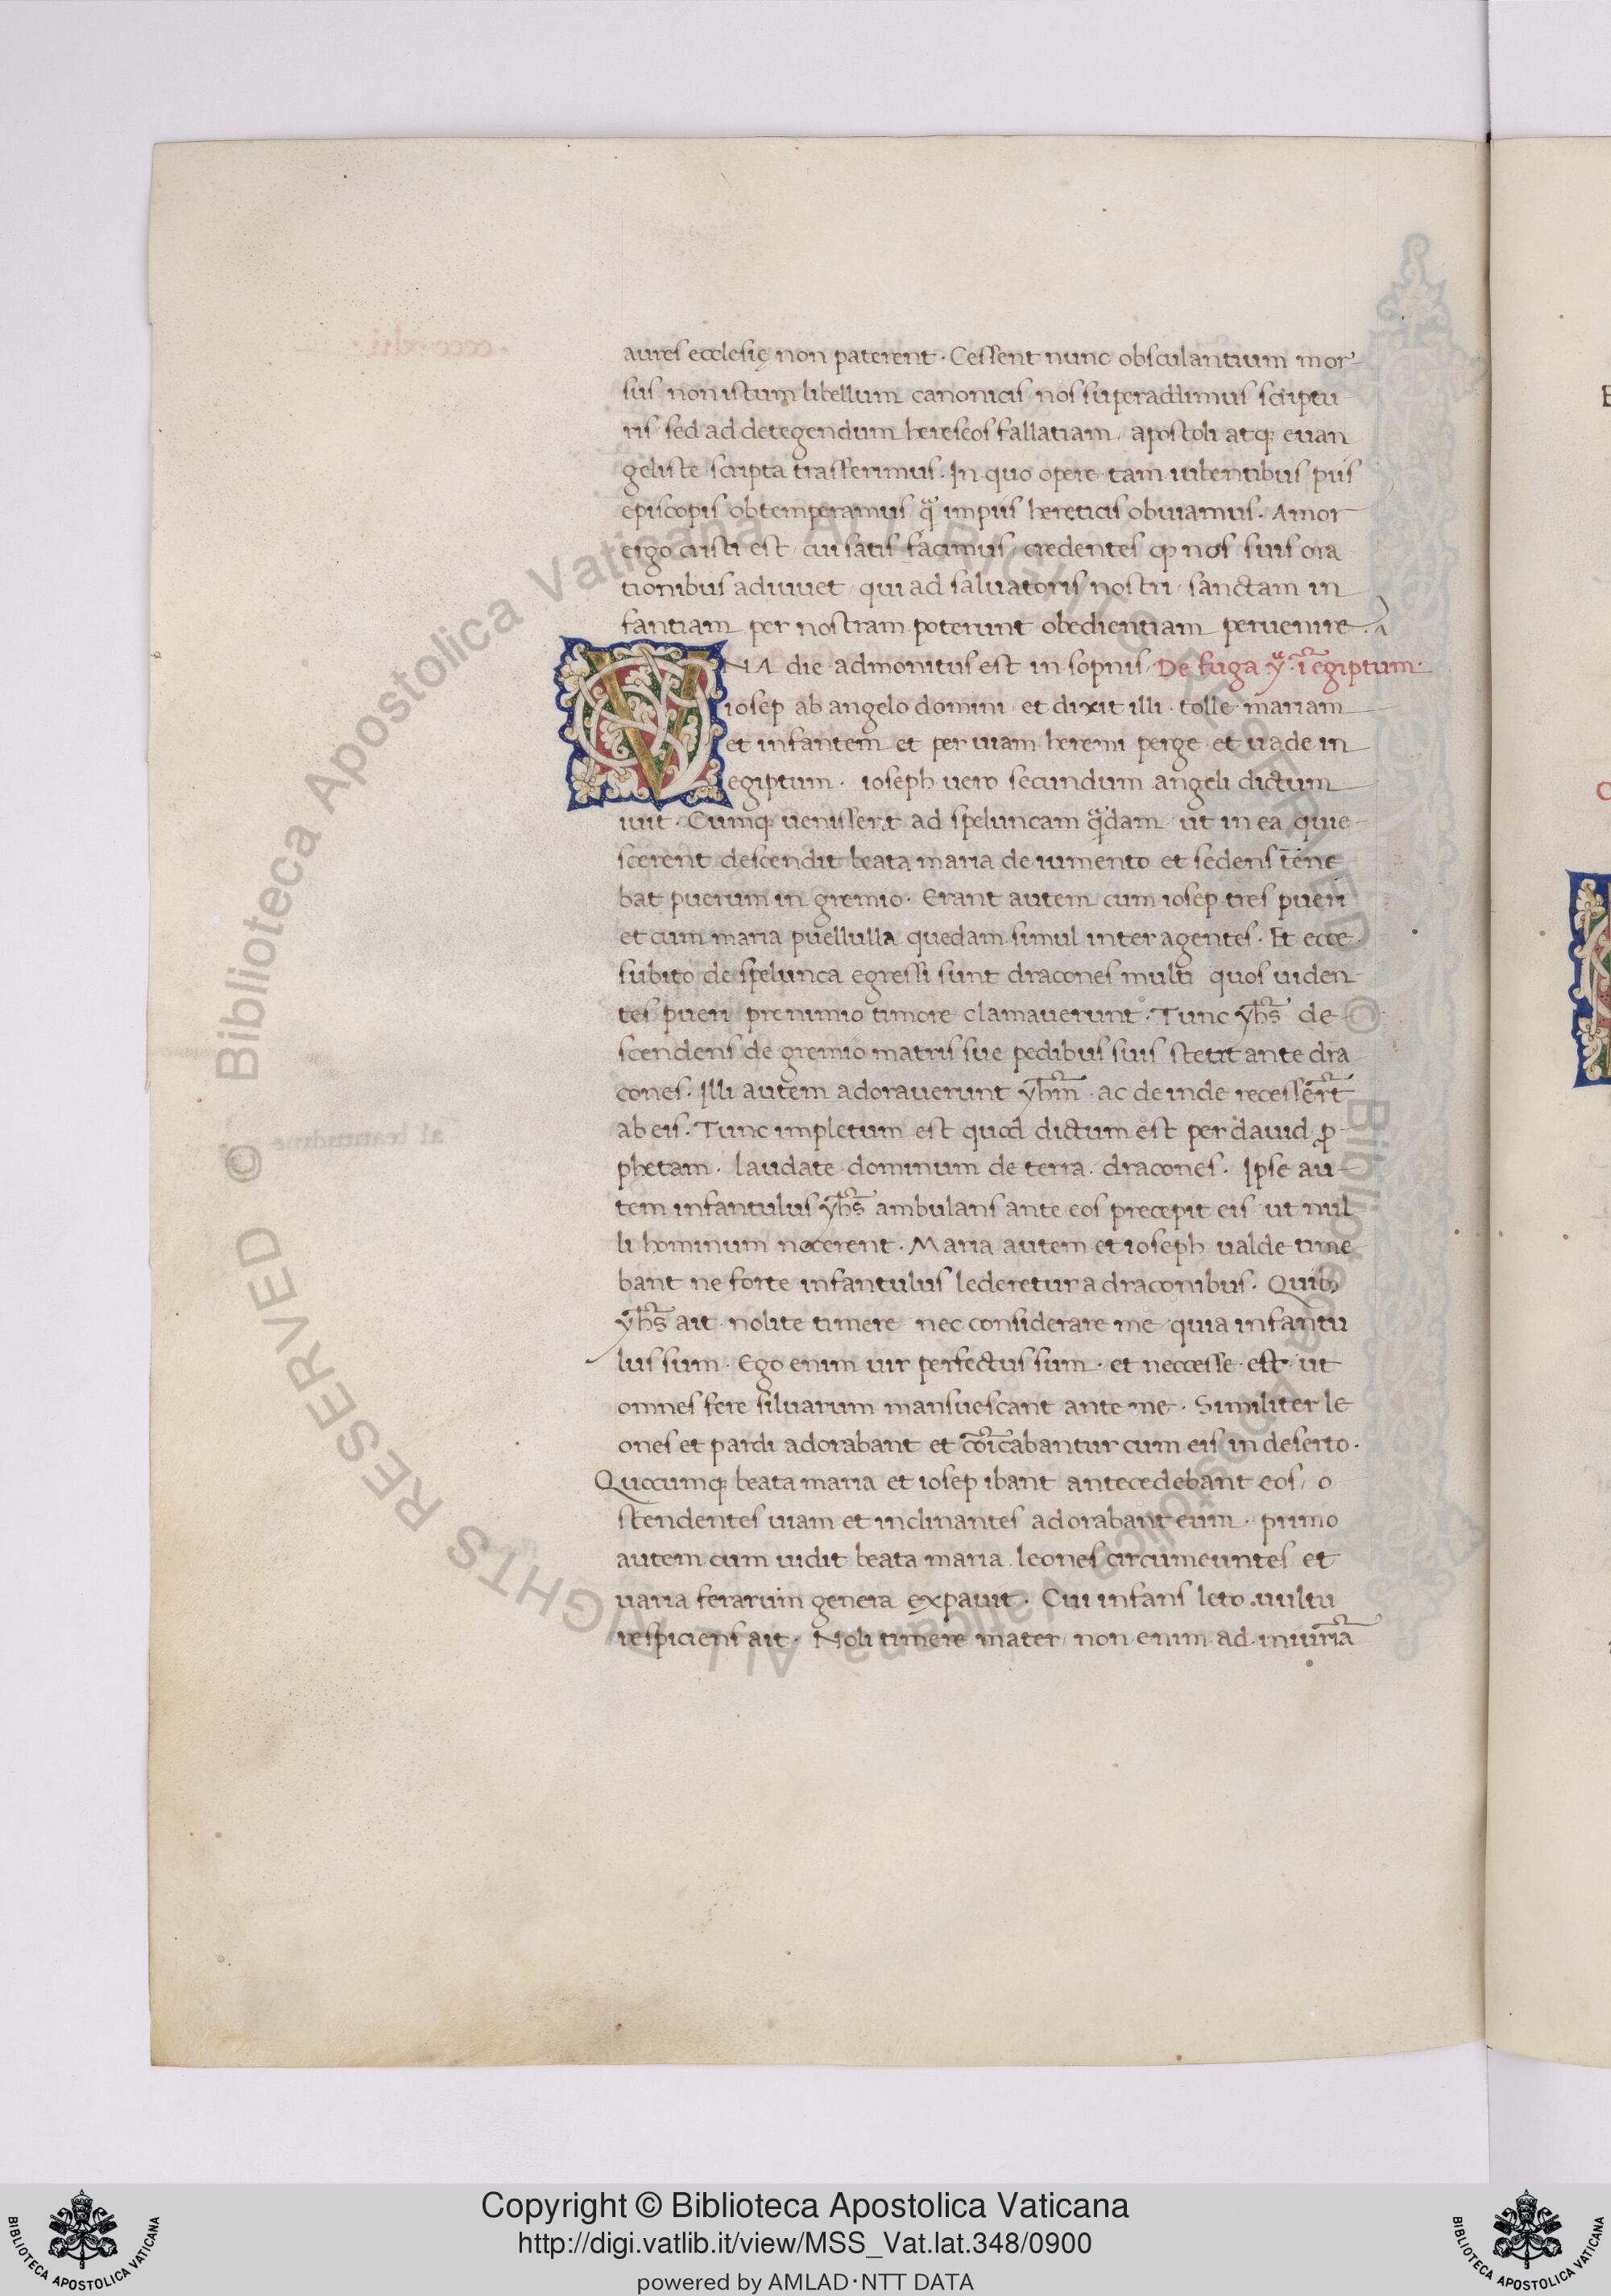 aures ecclesię non paterent · Cessent nunc obsculantium mor-
sus non istum libellum canonicis nos superaddimus scriptu-
ris sed ad detegendum hereseos fallatiam, apostoli atq; euan
geliste scripta trasferimus. In quo opere tam iubentibus piis
episcopis obtemperamus qᵃ impiis hereticis obuiamus. Amor
ergo cristi est, cui satis facimus, credentes ꝙ nos suis ora
tionibus adiuuet, qui ad saluatoris nostri, sanctam in
fantiam per nostram poterunt obedientiam peruenire.
VNA die admonitus est in sopnis De fuga ẏ. ī egiptum.
iosep ab angelo domini et dixit illi. tolle mariam
et infantem et per uiam heremi perge et uade in
egiptum. ioseph uero secundum angeli dictum
iuit. Cumq; uenissent ad speluncam qᵃdam ut in ea quie-
scerent descendit beata maria de iumento et sedens tene
bat puerum in gremio. Erant autem cum iosep tres pueri
et cum maria puellulla quedam simul inter agentes. Et ecce
subito de spelunca egressi sunt dracones multi quos uiden
tes pueri pre nimio timore clamauerunt. Tunc yh̄s de
scendens de gremio matris sue pedibus suis stetit ante dra
cones. Illi autem adorauerunt yh̄m. ac deinde recesser̄t
ab eis. Tunc impletum est quod dictum est per dauid ꝓ-
phetam. laudate dominum de terra dracones. Ipse au-
tem infantulus yh̄s ambulans ante eos precepit eis ut nul
li hominum nocerent. Maria autem et ioseph ualde time
bant ne forte infantulus lederetur a draconibus. Quibꝫ
yh̄s ait nolite timere nec considerare me quia infantu
lus sum. Ego enim uir perfectus sum. et neccesse est ut
omnes fere siluarum mansuescant ante me. Similiter le
ones et pardi adorabant et cōicabantur cum eis in deserto.
Quocumq; beata maria et iosep ibant antecedebant eos, o
stendentes uiam et inclinantes adorabant eum. primo
autem cum uidit beata maria leones circumeuntes et
uaria ferarum genera expauit. Cui infans leto uultu
respiciens ait. Noli timere mater, non enim ad iniuriā
© Biblioteca Apostolica Vaticana ALL RIGHTS RESERVED © Biblioteca Apostolica Vaticana ALL RIGHTS RESERVED
Copyright © Biblioteca Apostolica Vaticana
http://digi.vatlib.it/view/MSS_Vat.lat.348/0900
powered by AMLAD·NTT DATA
BIBLIOTECA APOSTOLICA VATICANA
BIBLIOTECA APOSTOLICA VATICANA